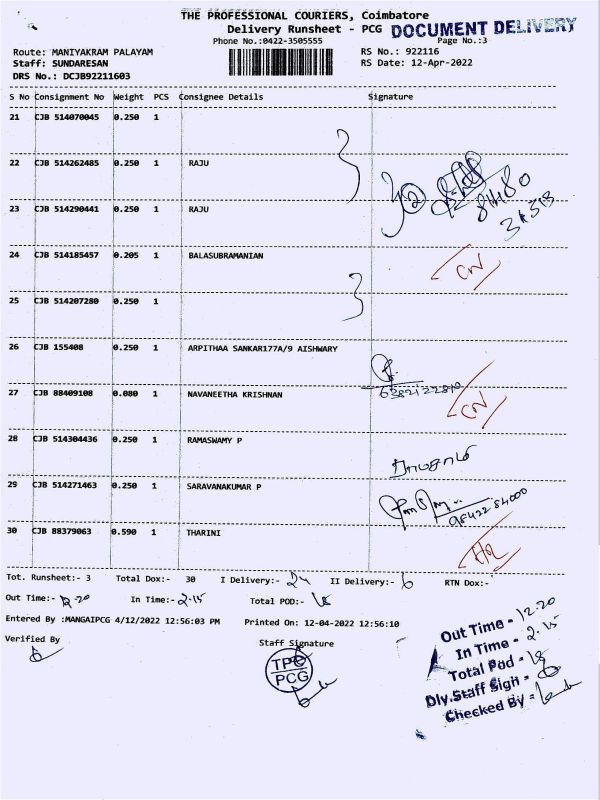 THE PROFESSIONAL COURIERS, Coimbatore
Delivery Runsheet - PCG DOCUMENT DELIVERY
Phone No.:0422-3505555 Page No.:3
Route: MANIYAKRAM PALAYAM RS No.: 922116
Staff: SUNDARESAN RS Date: 12-Apr-2022
DRS No.: DCJB92211603
S No Consignment No Weight PCS Consignee Details Signature
21 CJB 514070045 0.250 1
22 CJB 514262485 0.250 1 RAJU
2
23 CJB 514290441 0.250 1 RAJU
24 CJB 514185457 0.205 1 BALASUBRAMANIAN
CN
25 CJB 514207280 0.250 1
26 CJB 155408 0.250 1 ARPITHAA SANKAR177A/9 AISHWARY
27 CJB 88409108 0.080 1 NAVANEETHA KRISHNAN
CN
28 CJB 514304436 0.250 1 RAMASWAMY P
29 CJB 514271463 0.250 1 SARAVANAKUMAR P
30 CJB 88379063 0.590 1 THARINI
Tot. Runsheet:- 3 Total Dox:- 30 I Delivery:- 24 II Delivery:- 6 RTN Dox:-
Out Time:- 12-20 In Time:- 2-15 Total POD:- 18
Entered By :MANGAIPCG 4/12/2022 12:56:03 PM Printed On: 12-04-2022 12:56:10
Verified By Staff Signature
TPC
PCG
Out Time - 12-20
In Time - 2-15
Total Pod - 18
Dly.Staff Sign -
Checked By -